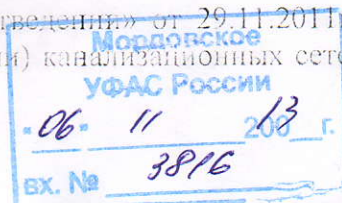 тведении» от 29.11.2011
и) канализационных сет
Мордовское
УФАС России
"06" 11 200 13 г.
вх. № 3816